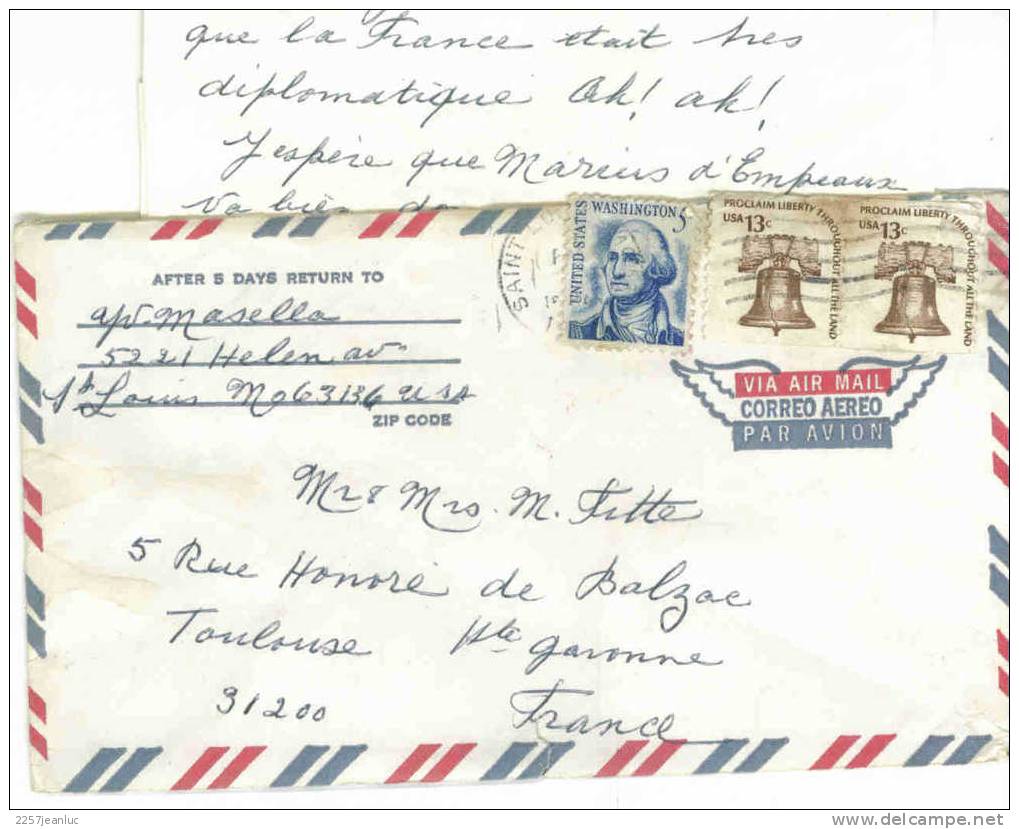 que la France etait tres
diplomatique Ah! ah!
J'espère que Marius d'Empeaux
va bien
SAINT
UNITED STATES
WASHINGTON 5
PROCLAIM LIBERTY THROUGHOUT ALL THE LAND
USA 13c
PROCLAIM LIBERTY THROUGHOUT ALL THE LAND
USA 13c
AFTER 5 DAYS RETURN TO
Masella
5221 Helen av
St Louis Mo 63136 USA
ZIP CODE
VIA AIR MAIL
CORREO AEREO
PAR AVION
Mr & Mrs. M. Fitte
5 Rue Honoré de Balzac
Toulouse Hte garonne
31200
France
2257jeanluc
delcampe.net